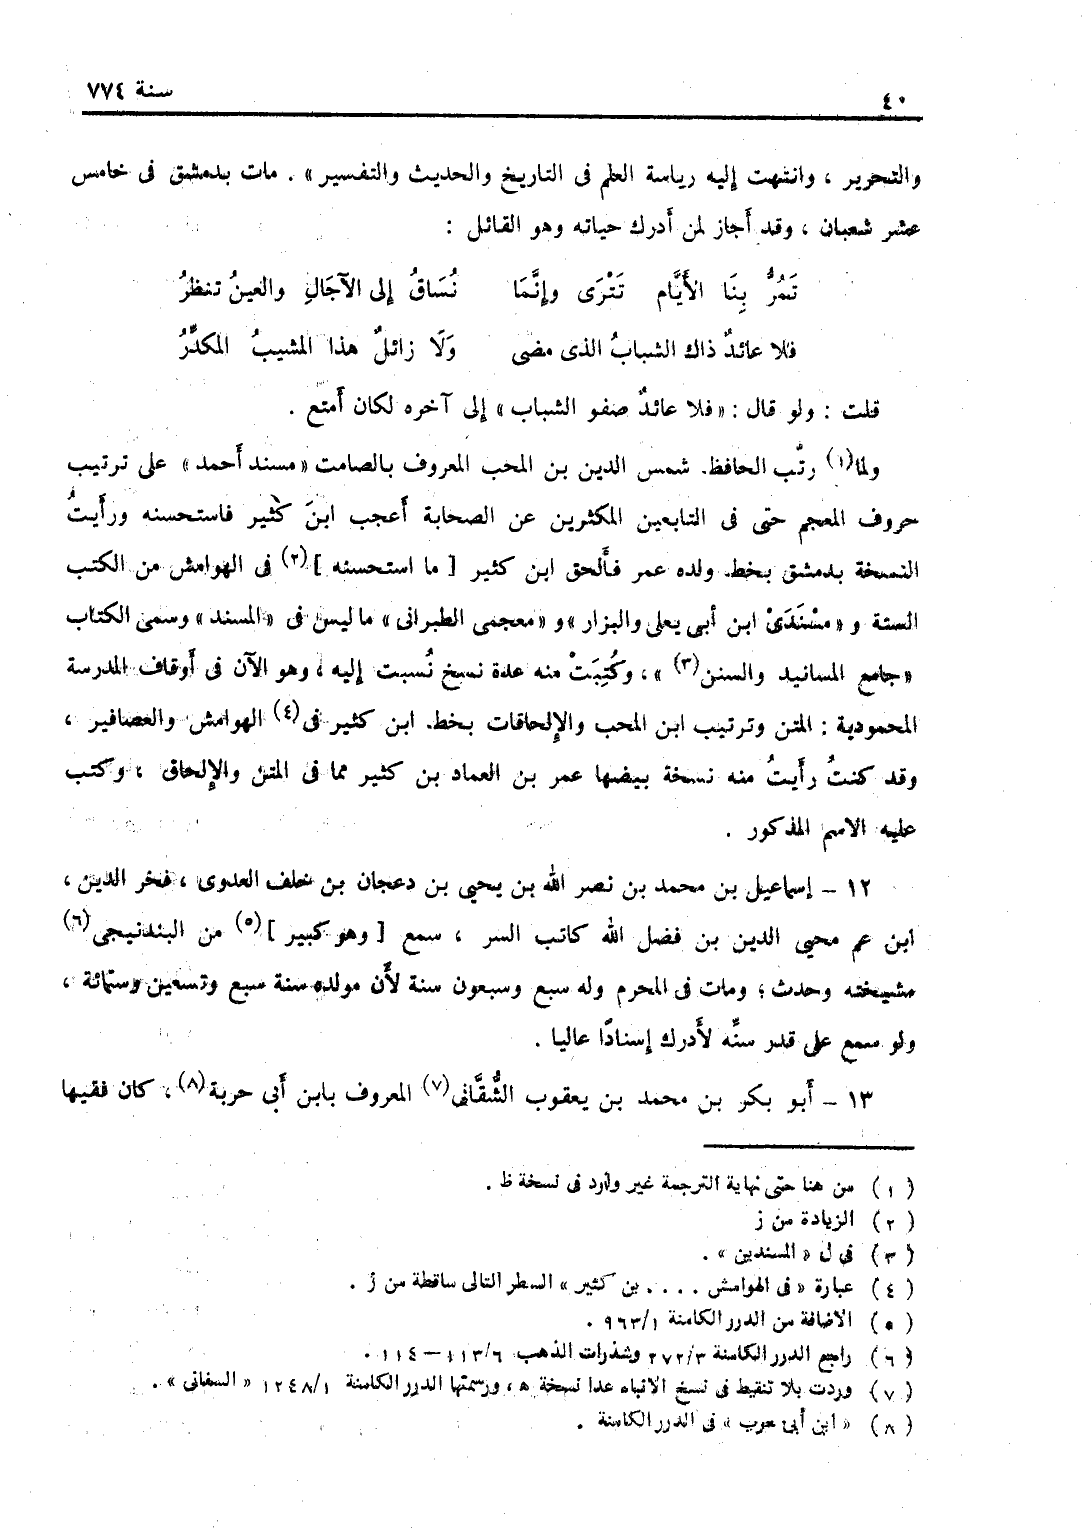 ٤٠ سنة ٧٧٤
والتحرير ، وانتهت إليه رياسة العلم فى التاريخ والحديث والتفسير » . مات بدمشق فى خامس
عشر شعبان ، وقد أجاز لمن أدرك حياته وهو القائل :
تَمُرُّ بِنَا الأَيَّام تَتْرَى وإنَّمَا نُسَاقُ إلى الآجَالِ والعينُ تنظرُ
فلا عائدٌ ذاك الشبابُ الذى مضى وَلَا زائلٌ هذا المشيبُ المكدِّرُ
قلت : ولو قال : « فلا عائدٌ صفو الشباب » إلى آخره لكان أمتع .
ولما(١) رتَّب الحافظ. شمس الدين بن المحب المعروف بالصامت « مسند أحمد » على ترتيب
حروف المعجم حتى فى التابعين المكثرين عن الصحابة أعجب ابنَ كثير فاستحسنه ورأيتُ
النسخة بدمشق بخط. ولده عمر فألحق ابن كثير [ ما استحسنه ](٢) فى الهوامش من الكتب
الستة و « مسْنَدَىْ ابن أبى يعلى والبزار » و « معجمى الطبرانى » ما ليس فى « المسند » وسمى الكتاب
« جامع المسانيد والسنن(٣) » ، وكُتِبَتْ منه عدة نسخ نُسبت إليه ، وهو الآن فى أوقاف المدرسة
المحمودية : المتن وترتيب ابن المحب والإلحاقات بخط. ابن كثير فى(٤) الهوامش والعصافير ،
وقد كنتُ رأيتُ منه نسخة بيضها عمر بن العماد بن كثير مما فى المتن والإلحاق ، وكتب
عليه الاسم المذكور .
١٢ ــ إسماعيل بن محمد بن نصر الله بن يحيى بن دعجان بن خلف العدوى ، فخر الدين ،
ابن عم محيى الدين بن فضل الله كاتب السر ، سمع [ وهو كبير ](٥) من البندنيجى(٦)
مشيخته وحدث ؛ ومات فى المحرم وله سبع وسبعون سنة لأن مولده سنة سبع وتسعين وستمائة ،
ولو سمع على قدر سنِّه لأدرك إسنادًا عاليا .
١٣ ــ أبو بكر بن محمد بن يعقوب الشُّقَّانى(٧) المعروف بابن أبى حربة(٨) ، كان فقيها
( ١ ) من هنا حتى نهاية الترجمة غير وارد فى نسخة ظ .
( ٢ ) الزيادة من ز
( ٣ ) فى ل « المسندين » .
( ٤ ) عبارة « فى الهوامش . . . . بن كثير » السطر التالى ساقطة من ز .
( ٥ ) الاضافة من الدرر الكامنة ٩٦٣/١ .
( ٦ ) راجع الدرر الكامنة ٢٧٢/٣ وشذرات الذهب ١١٣/٦ – ١١٤ .
( ٧ ) وردت بلا تنقيط فى نسخ الانباء عدا نسخة ه ، ورسمتها الدرر الكامنة ١٢٤٨/١ « السفانى » .
( ٨ ) « ابن أبى حرب » فى الدرر الكامنة .